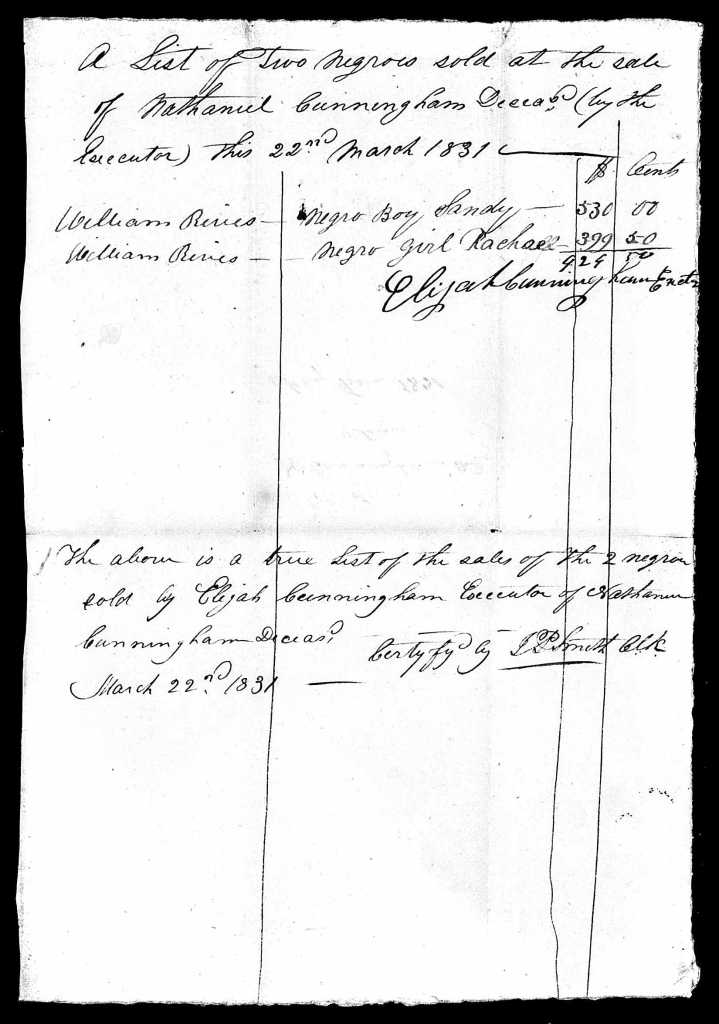 A List of Two negroes sold at the sale
of Nathaniel Cunningham Deceasd (by the
Executor) this 22nd March 1831
$ Cents
William Rives - Negro Boy Sandy - 530 00
William Rives - Negro girl Rachael - 399 50
929 50
Elijah Cunningham Exetr
The above is a true List of the sales of the 2 negroes
sold by Elijah Cunningham Executor of Nathaniel
Cunningham Deceasd
Certyfyd by J P Smith Clk
March 22nd 1831